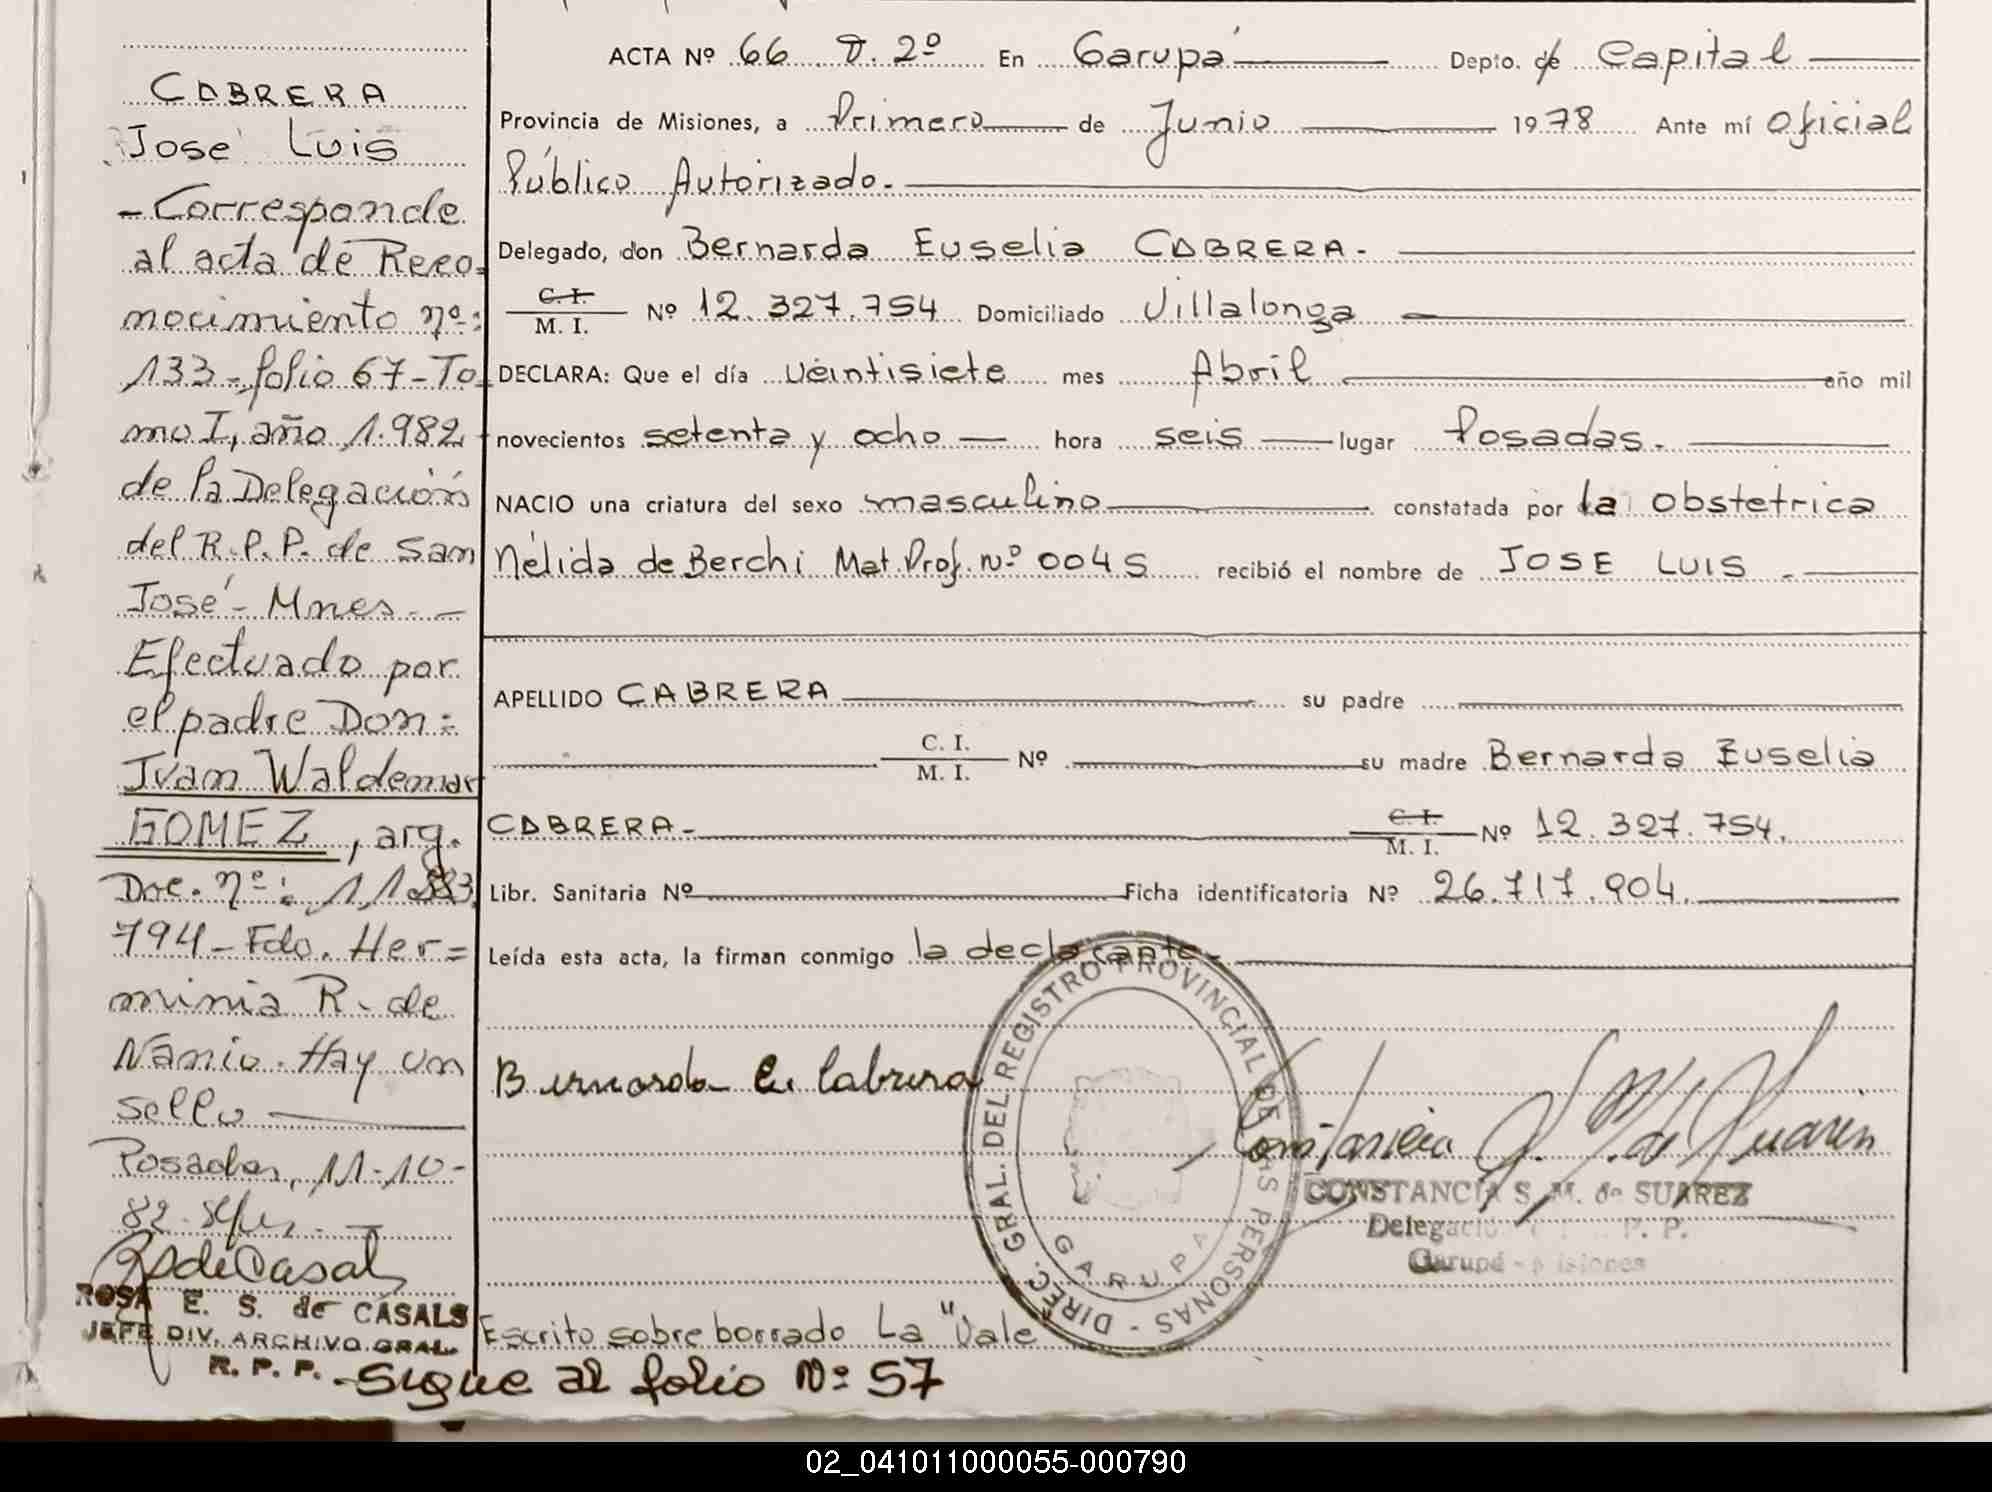 CABRERA
José Luis
- Corresponde
al acta de Reco=
nocimiento nº:
133-folio 67-To
mo I, año 1.982
de la Delegación
del R.P.P. de San
José - Mnes. -
Efectuado por
el padre Don =
Ivan Waldemar
GOMEZ, arg.
Doc. nº: 11.883
794 - Fdo. Her=
minia R. de
Nanio. Hay un
sello
Posadas, 11-10-
82.
ROSA E. S. de CASALS
JEFE DIV. ARCHIVO GRAL.
R. P. P.
ACTA Nº 66 T. 2º En Garupá Depto. de Capital
Provincia de Misiones, a Primero de Junio 1978 Ante mí Oficial
Público Autorizado.
Delegado, don Bernarda Euselia CABRERA.
C. I.
M. I. Nº 12.327.754 Domiciliado Villalonga
DECLARA: Que el día veintisiete mes Abril año mil
novecientos setenta y ocho hora seis lugar Posadas.
NACIO una criatura del sexo masculino constatada por la obstetrica
Nélida de Berchi Mat. Prof. Nº 0045 recibió el nombre de JOSE LUIS
APELLIDO CABRERA su padre
C. I.
M. I. Nº su madre Bernarda Euselia
CABRERA. C. I.
M. I. Nº 12.327.754.
Libr. Sanitaria Nº Ficha identificatoria Nº 26.717.904.
Leída esta acta, la firman conmigo la declarante.
Bernarda E. Cabrera
DIREC. GRAL. DEL REGISTRO PROVINCIAL DE LAS PERSONAS -
GARUPA
Constancia S. M. de Suarez
CONSTANCIA S. M. de SUAREZ
Delegación R. P. P.
Garupá - Misiones
Escrito sobre borrado La "Vale
- Sigue al folio Nº 57
02_041011000055-000790